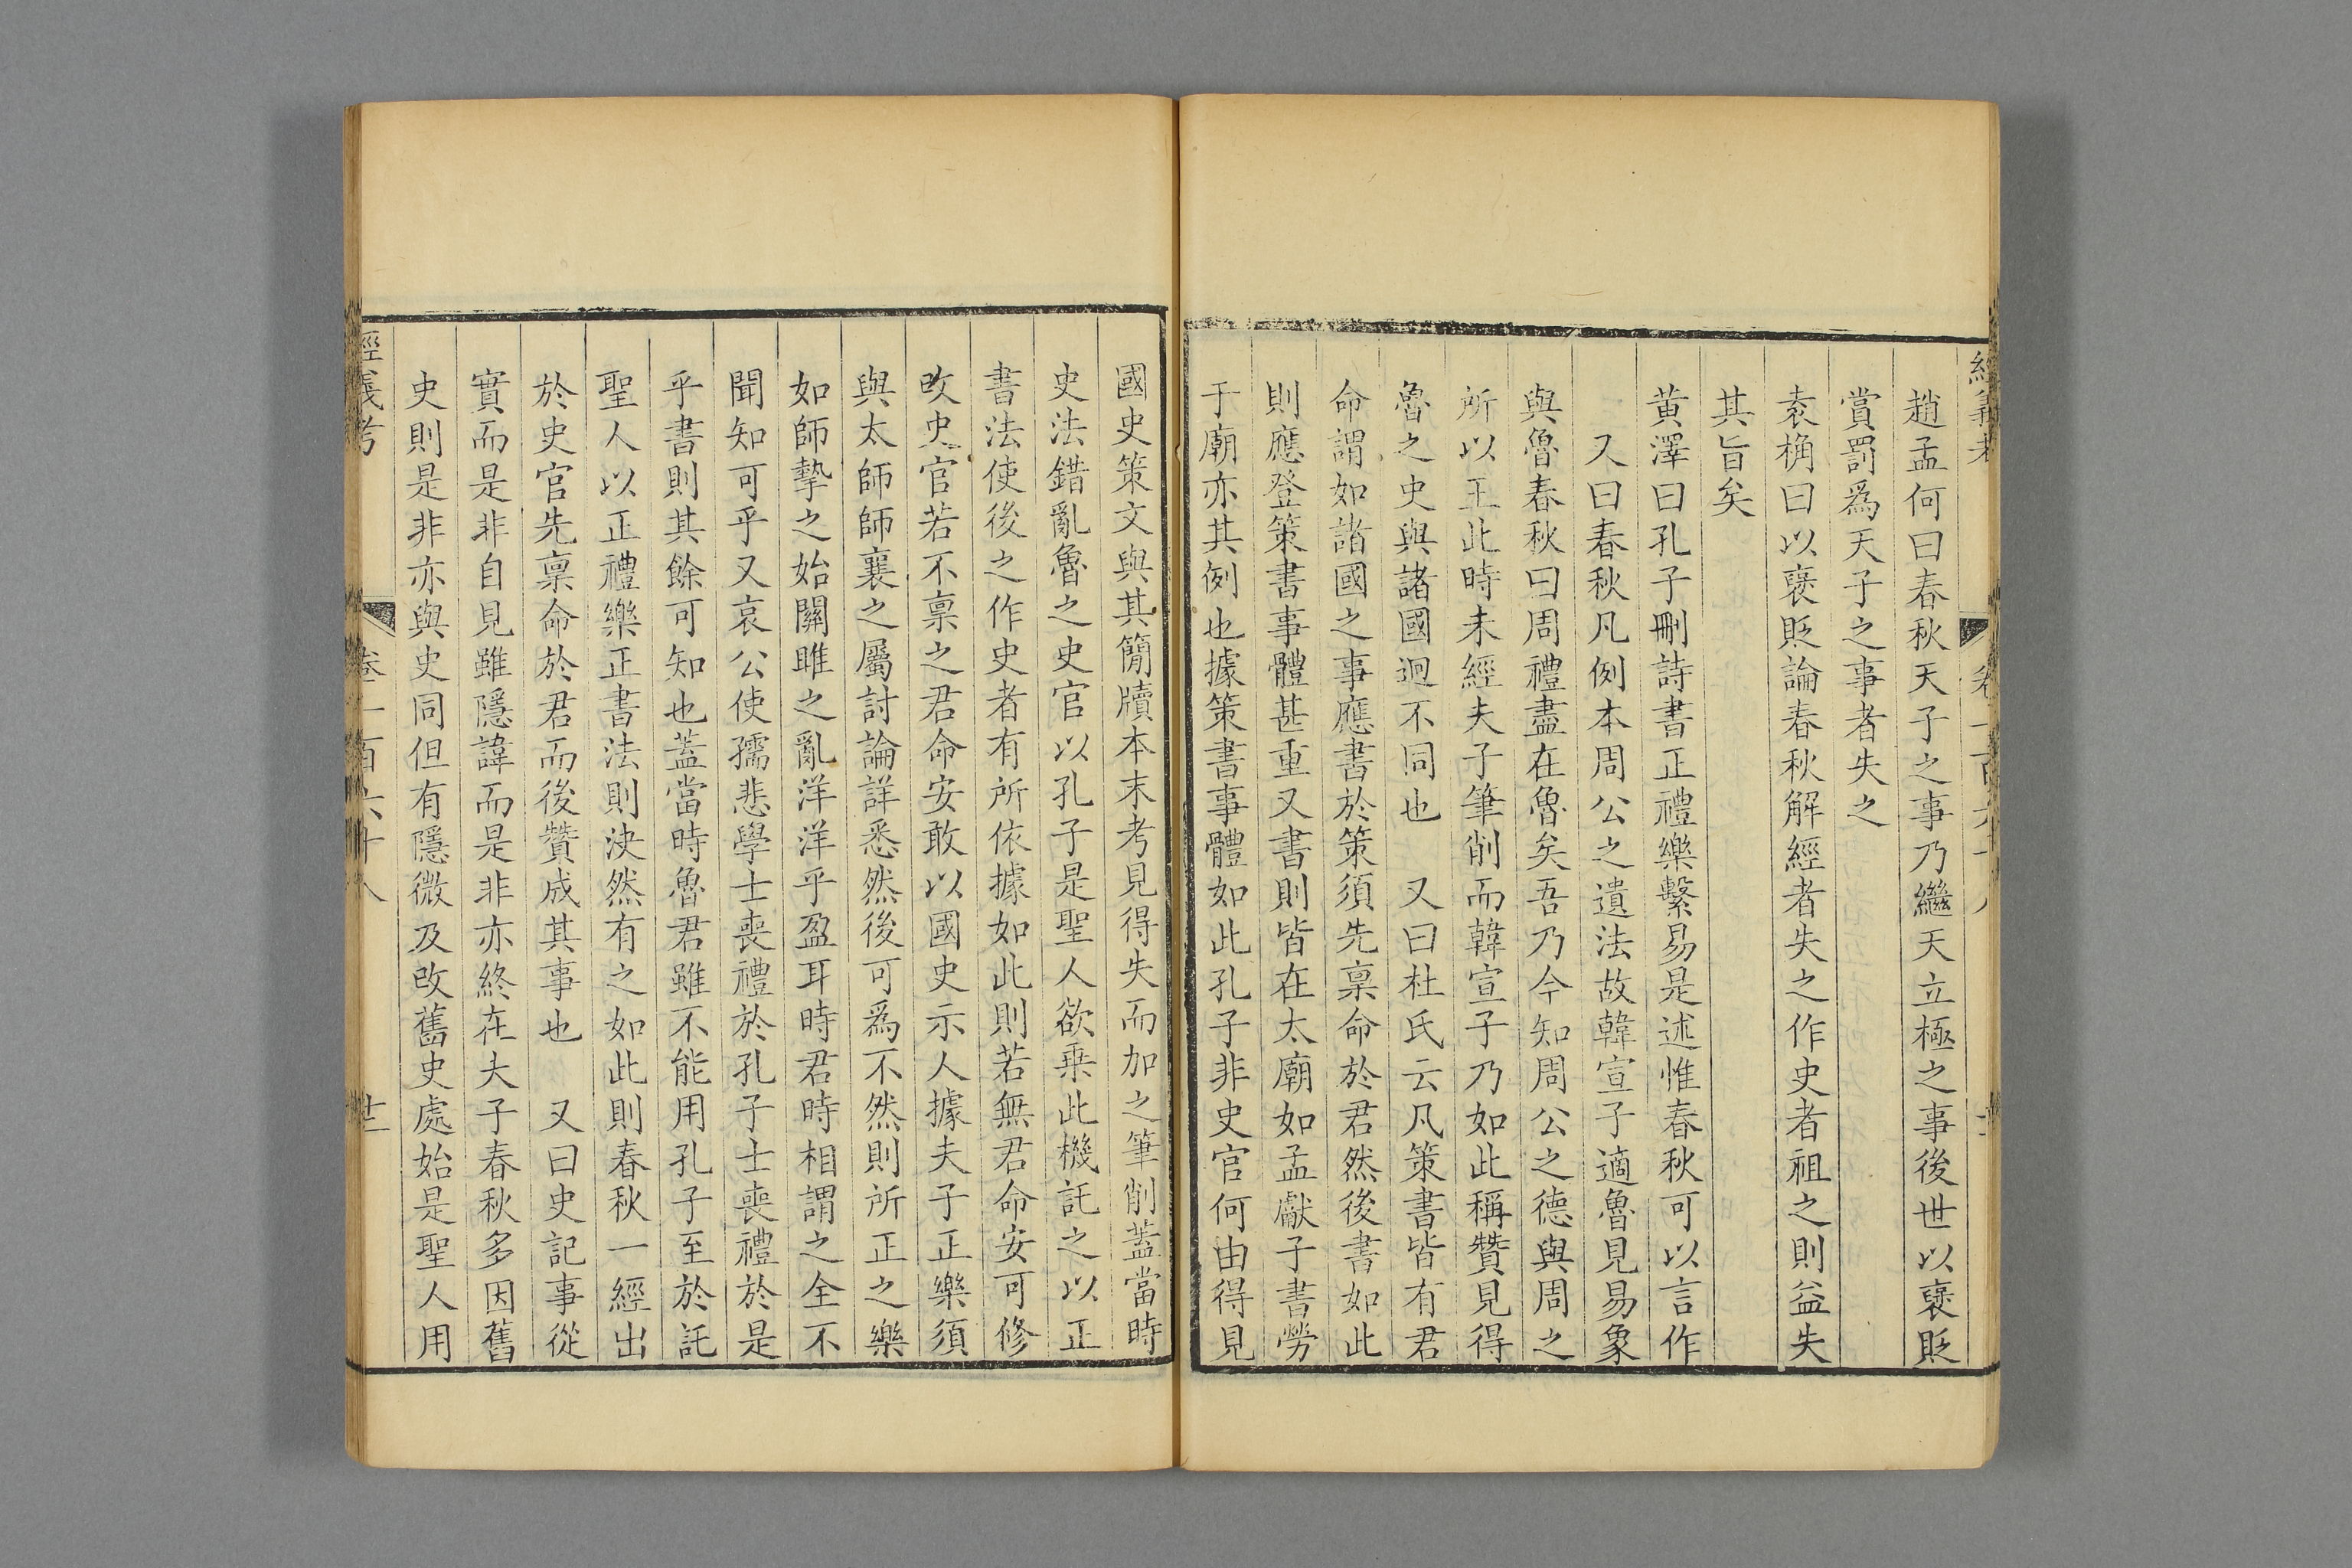 趙孟何曰春秋天子之事乃繼天立極之事後世以襃貶
賞罰爲天子之事者失之
袁桷曰以襃貶論春秋解經者失之作史者祖之則益失
其旨矣
黄澤曰孔子刪詩書正禮樂繫易是述惟春秋可以言作
又曰春秋凡例本周公之遺法故韓宣子適魯見易象
與魯春秋曰周禮盡在魯矣吾乃今知周公之德與周之
所以王此時未經夫子筆削而韓宣子乃如此稱贊見得
魯之史與諸國迥不同也　又曰杜氏云凡策書皆有君
命謂如諸國之事應書於策須先稟命於君然後書如此
則應登策書事體甚重又書則皆在太廟如孟獻子書勞
于廟亦其例也據策書事體如此孔子非史官何由得見
國史策文與其簡牘本末考見得失而加之筆削蓋當時
史法錯亂魯之史官以孔子是聖人欲乗此機託之以正
書法使後之作史者有所依據如此則若無君命安可修
改史官若不稟之君命安敢以國史示人據夫子正樂須
與太師師襄之屬討論詳悉然後可爲不然則所正之樂
如師摯之始關雎之亂洋洋乎盈耳時君時相謂之全不
聞知可乎又哀公使孺悲學士喪禮於孔子士喪禮於是
乎書則其餘可知也蓋當時魯君雖不能用孔子至於託
聖人以正禮樂正書法則決然有之如此則春秋一經出
於史官先稟命於君而後贊成其事也　又曰史記事從
實而是非自見雖隱諱而是非亦終在夫子春秋多因舊
史則是非亦與史同但有隱微及改舊史處始是聖人用
經義考　卷一百六十八　廿